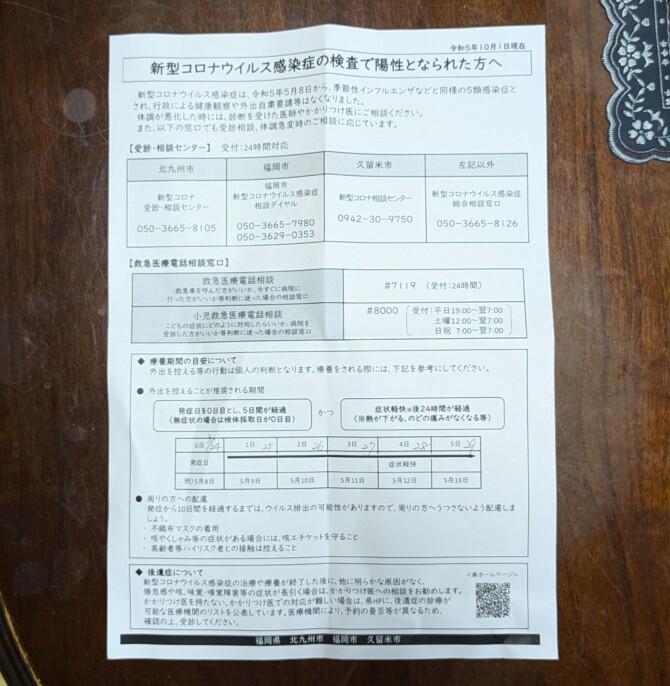 令和5年10月1日現在
新型コロナウイルス感染症の検査で陽性となられた方へ
新型コロナウイルス感染症は、令和5年5月8日から、季節性インフルエンザなどと同様の5類感染症と
され、行政による健康観察や外出自粛要請等はなくなりました。
体調が悪化した時には、診断を受けた医師やかかりつけ医にご相談ください。
また、以下の窓口でも受診相談、体調急変時のご相談に応じています。
【受診・相談センター】 受付:24時間対応
北九州市 福岡市 久留米市 左記以外
新型コロナ
受診・相談センター
050-3665-8105
福岡市
新型コロナウイルス感染症
相談ダイヤル
050-3665-7980
050-3629-0353
新型コロナ相談センター
0942-30-9750
新型コロナウイルス感染症
総合相談窓口
050-3665-8126
【救急医療電話相談窓口】
救急医療電話相談
救急車を呼んだ方がいいか、今すぐに病院に
行った方がいいか等判断に迷った場合の相談窓口
#7119 (受付:24時間)
小児救急医療電話相談
こどもの症状にどのように対処したらいいか、病院を
受診した方がいいか等判断に迷った場合の相談窓口
#8000 受付:平日19:00~翌7:00
土曜12:00~翌7:00
日祝 7:00~翌7:00
◆ 療養期間の目安について
外出を控える等の行動は個人の判断となります。療養をされる際には、下記を参考にしてください。
● 外出を控えることが推奨される期間
発症日を0日目とし、5日間が経過
(無症状の場合は検体採取日が0日目)
かつ
症状軽快※後24時間が経過
(※熱が下がる、のどの痛みがなくなる等)
0日 3/24 1日 25 2日 26 3日 27 4日 28 5日 29
発症日 症状軽快
例)5月8日 5月9日 5月10日 5月11日 5月12日 5月13日
● 周りの方への配慮
発症から10日間を経過するまでは、ウイルス排出の可能性がありますので、周りの方へうつさないよう配慮しま
しょう。
・ 不織布マスクの着用
・ 咳やくしゃみ等の症状がある場合には、咳エチケットを守ること
・ 高齢者等ハイリスク者との接触は控えること
◆ 後遺症について
<県ホームページ>
新型コロナウイルス感染症の治療や療養が終了した後に、他に明らかな原因がなく、
倦怠感や咳、味覚・嗅覚障害等の症状が長引く場合は、かかりつけ医への相談をお勧めします。
かかりつけ医を持たない、かかりつけ医での対応が難しい場合は、県HPに、後遺症の診療が
可能な医療機関のリストを公表しています。医療機関により、予約の要否等が異なるため、
確認の上、受診してください。
福岡県 北九州市 福岡市 久留米市